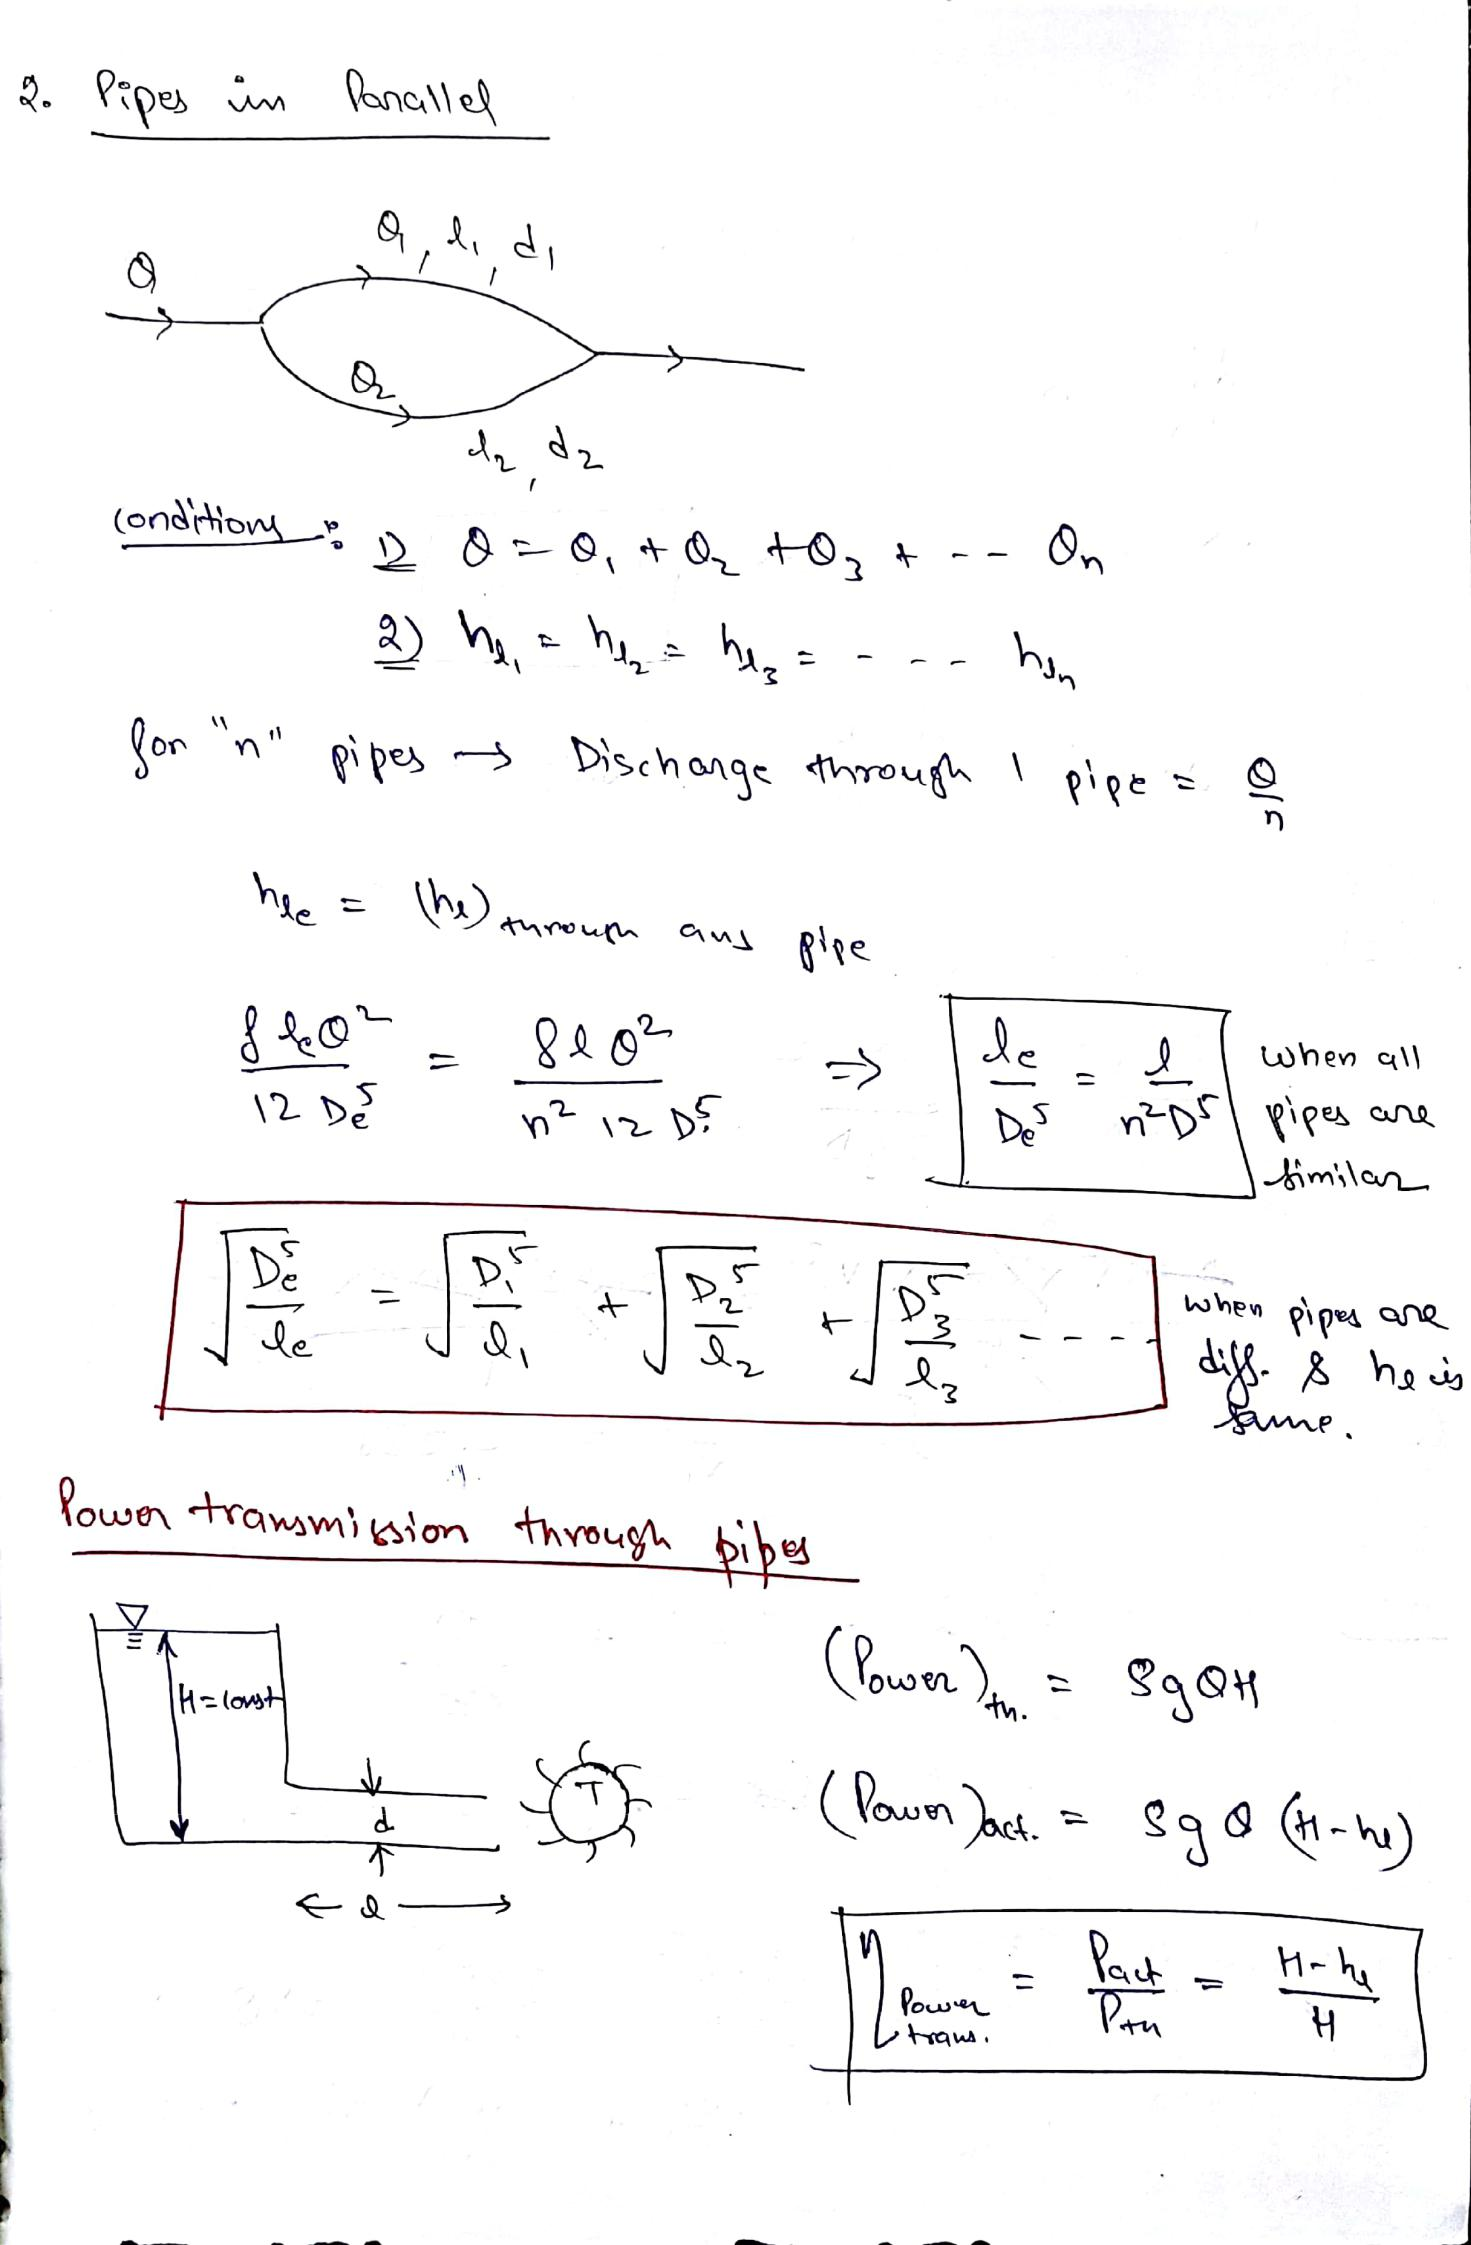 2. Pipes in Parallel
Q
Q₁, l₁, d₁
Q₂
l₂, d₂
Conditions :- 1) Q = Q₁ + Q₂ + Q₃ + - - Qₙ
2) hₗ₁ = hₗ₂ = hₗ₃ = - - - hₗₙ
for "n" pipes → Discharge through 1 pipe = Q/n
hₗₑ = (hₗ) through any pipe
f lₑ Q² / 12 Dₑ⁵ = f l Q² / n² 12 D⁵ ⇒ lₑ / Dₑ⁵ = l / n² D⁵ when all pipes are similar
√(Dₑ⁵ / lₑ) = √(D₁⁵ / l₁) + √(D₂⁵ / l₂) + √(D₃⁵ / l₃) - - - - when pipes are diff. & hₗ is same.
Power transmission through pipes
H = const
d
l
T
(Power)th. = ρgQH
(Power)act. = ρgQ (H - hₗ)
η Power trans. = Pact / Pth = H - hₗ / H